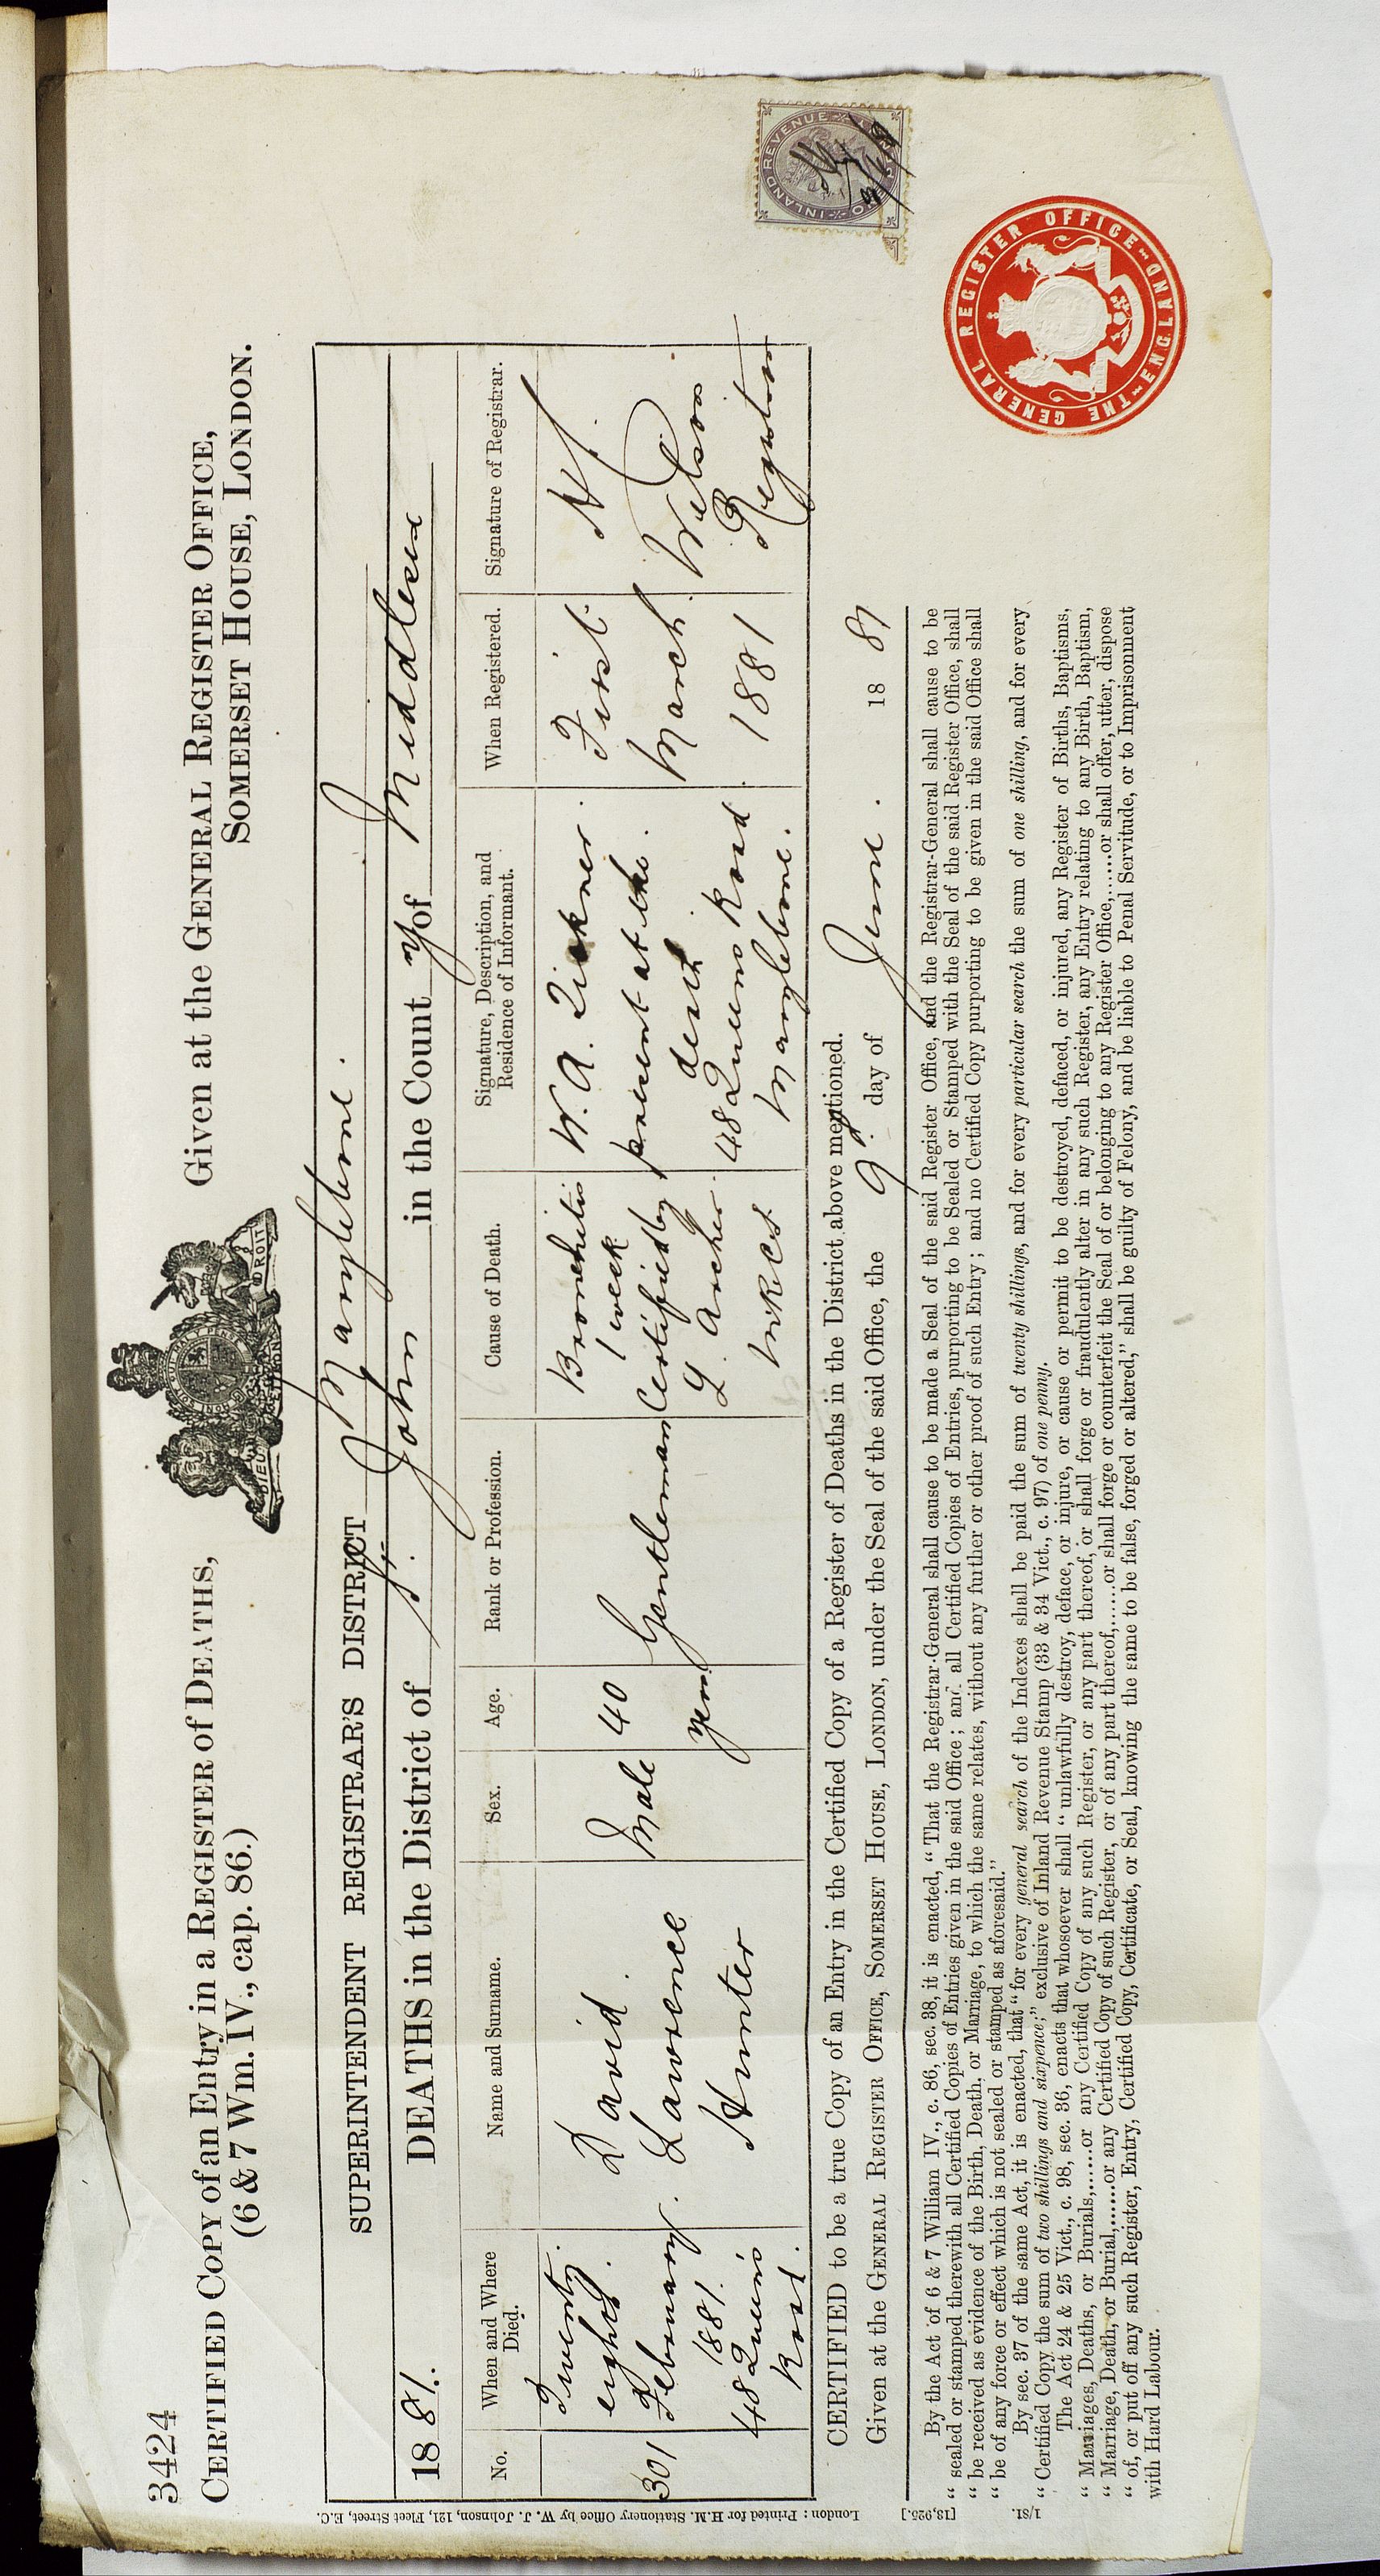 3424
CERTIFIED COPY of an Entry in a REGISTER of DEATHS,
(6 & 7 Wm. IV., cap. 86.)
DIEU ET MON DROIT
Given at the GENERAL REGISTER OFFICE,
SOMERSET HOUSE, LONDON.
SUPERINTENDENT REGISTRAR'S DISTRICT Marylebone.
1881. DEATHS in the District of St. John in the County of Middlesex
No.
When and Where
Died.
Name and Surname.
Sex.
Age.
Rank or Profession.
Cause of Death.
Signature, Description, and
Residence of Informant.
When Registered.
Signature of Registrar.
301
Twenty
eighth
February
1881.
48 Queens
Road.
David
Lawrence
Hunter
Male
40
years
Gentleman
Bronchitis
1 week
Certified by
L. Archer
MRCS
W. A. Tickner.
present at the
death.
48 Queens Road
Marylebone.
First
March
1881
H.
Watson
Registrar
CERTIFIED to be a true Copy of an Entry in the Certified Copy of a Register of Deaths in the District above mentioned.
Given at the GENERAL REGISTER OFFICE, SOMERSET HOUSE, LONDON, under the Seal of the said Office, the 9th. day of June. 1881
By the Act of 6 & 7 William IV., c. 86, sec. 38, it is enacted, "That the Registrar-General shall cause to be made a Seal of the said Register Office, and the Registrar-General shall cause to be
"sealed or stamped therewith all Certified Copies of Entries given in the said Office; and all Certified Copies of Entries, purporting to be Sealed or Stamped with the Seal of the said Register Office, shall
"be received as evidence of the Birth, Death, or Marriage, to which the same relates, without any further or other proof of such Entry; and no Certified Copy purporting to be given in the said Office shall
"be of any force or effect which is not sealed or stamped as aforesaid."
By sec. 37 of the same Act, it is enacted, that "for every general search of the Indexes shall be paid the sum of twenty shillings, and for every particular search the sum of one shilling, and for every
"Certified Copy the sum of two shillings and sixpence;" exclusive of Inland Revenue Stamp (33 & 34 Vict., c. 97) of one penny.
The Act 24 & 25 Vict., c. 98, sec. 36, enacts that whosoever shall "unlawfully destroy, deface, or injure, or cause or permit to be destroyed, defaced, or injured, any Register of Births, Baptisms,
"Marriages, Deaths, or Burials,......or any Certified Copy of any such Register, or any part thereof, or shall forge or fraudulently alter in any such Register, any Entry relating to any Birth, Baptism,
"Marriage, Death, or Burial,......or any Certified Copy of such Register, or of any part thereof,......or shall forge or counterfeit the Seal of or belonging to any Register Office,......or shall offer, utter, dispose
"of, or put off any such Register, Entry, Certified Copy, Certificate, or Seal, knowing the same to be false, forged or altered," shall be guilty of Felony, and be liable to Penal Servitude, or to Imprisonment
with Hard Labour.
London: Printed for H.M. Stationery Office by W. J. Johnson, 121, Fleet Street, E.C.
[13,925.] 1/81.
INLAND REVENUE
THE GENERAL REGISTER OFFICE ENGLAND